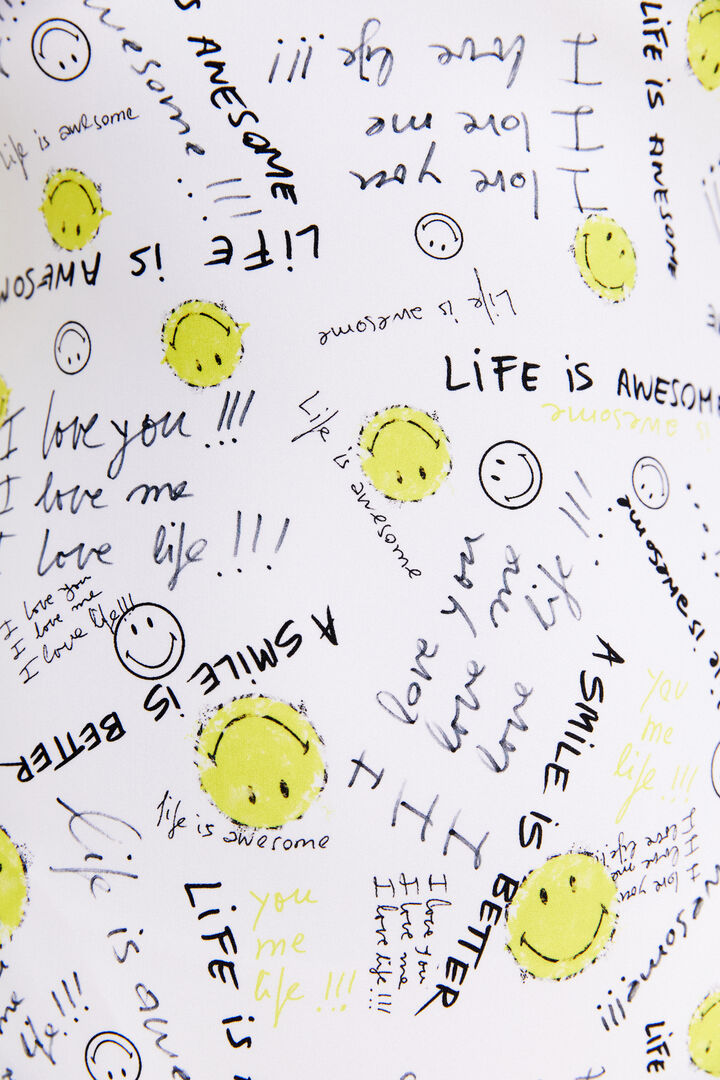 IS AWESOME
awesome !!!
I love life !!!
I love me
I love you
LIFE IS AWESOME
Life is awesome
LIFE IS AWESOME
Life is awesome
LIFE IS AWESOME
is awesome
I love you !!!
I love me
I love life !!!
Life is awesome
I love you
I love me
I love life!!!
I love you
I love me
I love life !!!
is awesome
A SMILE IS BETTER
A SMILE IS BETTER
you
me
life !!!
Life is awesome
Life is awe
LIFE IS A
you
me
life !!!
I love you
I love me
I love life !!!
I love you
I love me
I love life!!
awesome!!!
life !!!
LIFE